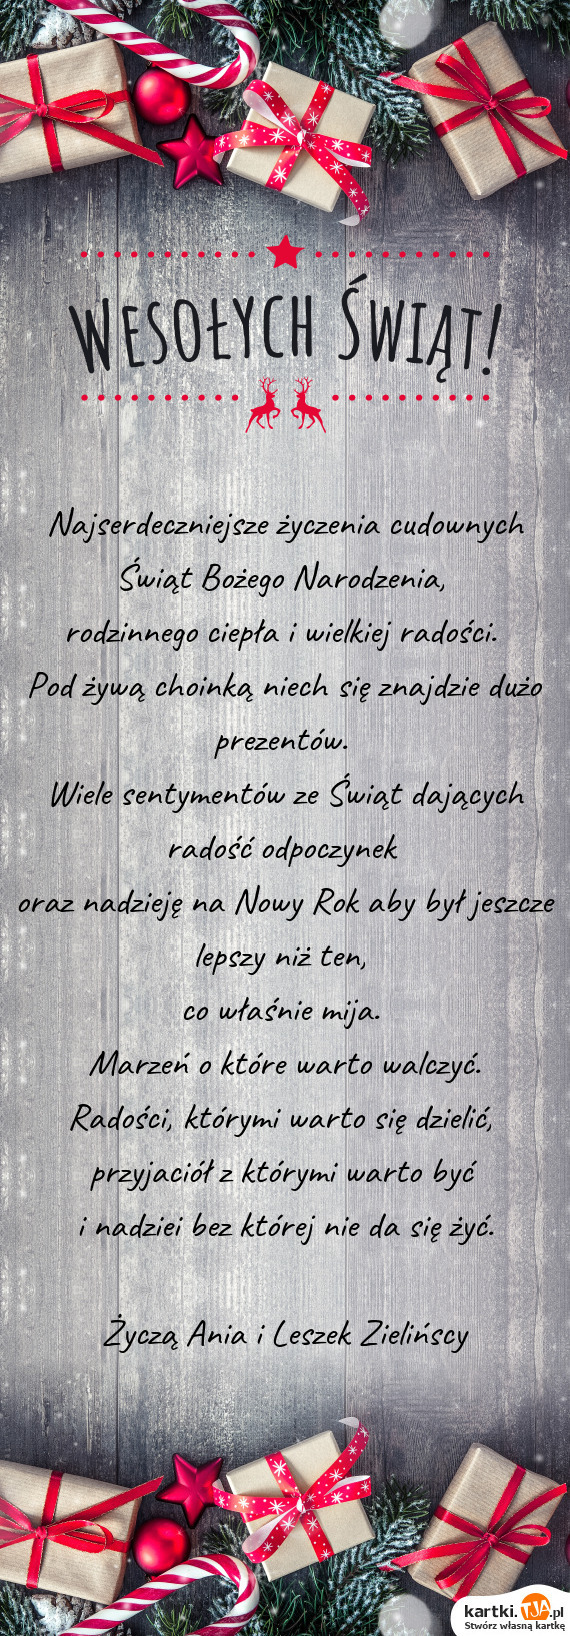 Wesołych Świąt!
Najserdeczniejsze życzenia cudownych
Świąt Bożego Narodzenia,
rodzinnego ciepła i wielkiej radości.
Pod żywą choinką niech się znajdzie dużo
prezentów.
Wiele sentymentów ze Świąt dających
radość odpoczynek
oraz nadzieję na Nowy Rok aby był jeszcze
lepszy niż ten,
co właśnie mija.
Marzeń o które warto walczyć.
Radości, którymi warto się dzielić,
przyjaciół z którymi warto być
i nadziei bez której nie da się żyć.
Życzą Ania i Leszek Zielińscy
kartki.TJA.pl
Stwórz własną kartkę